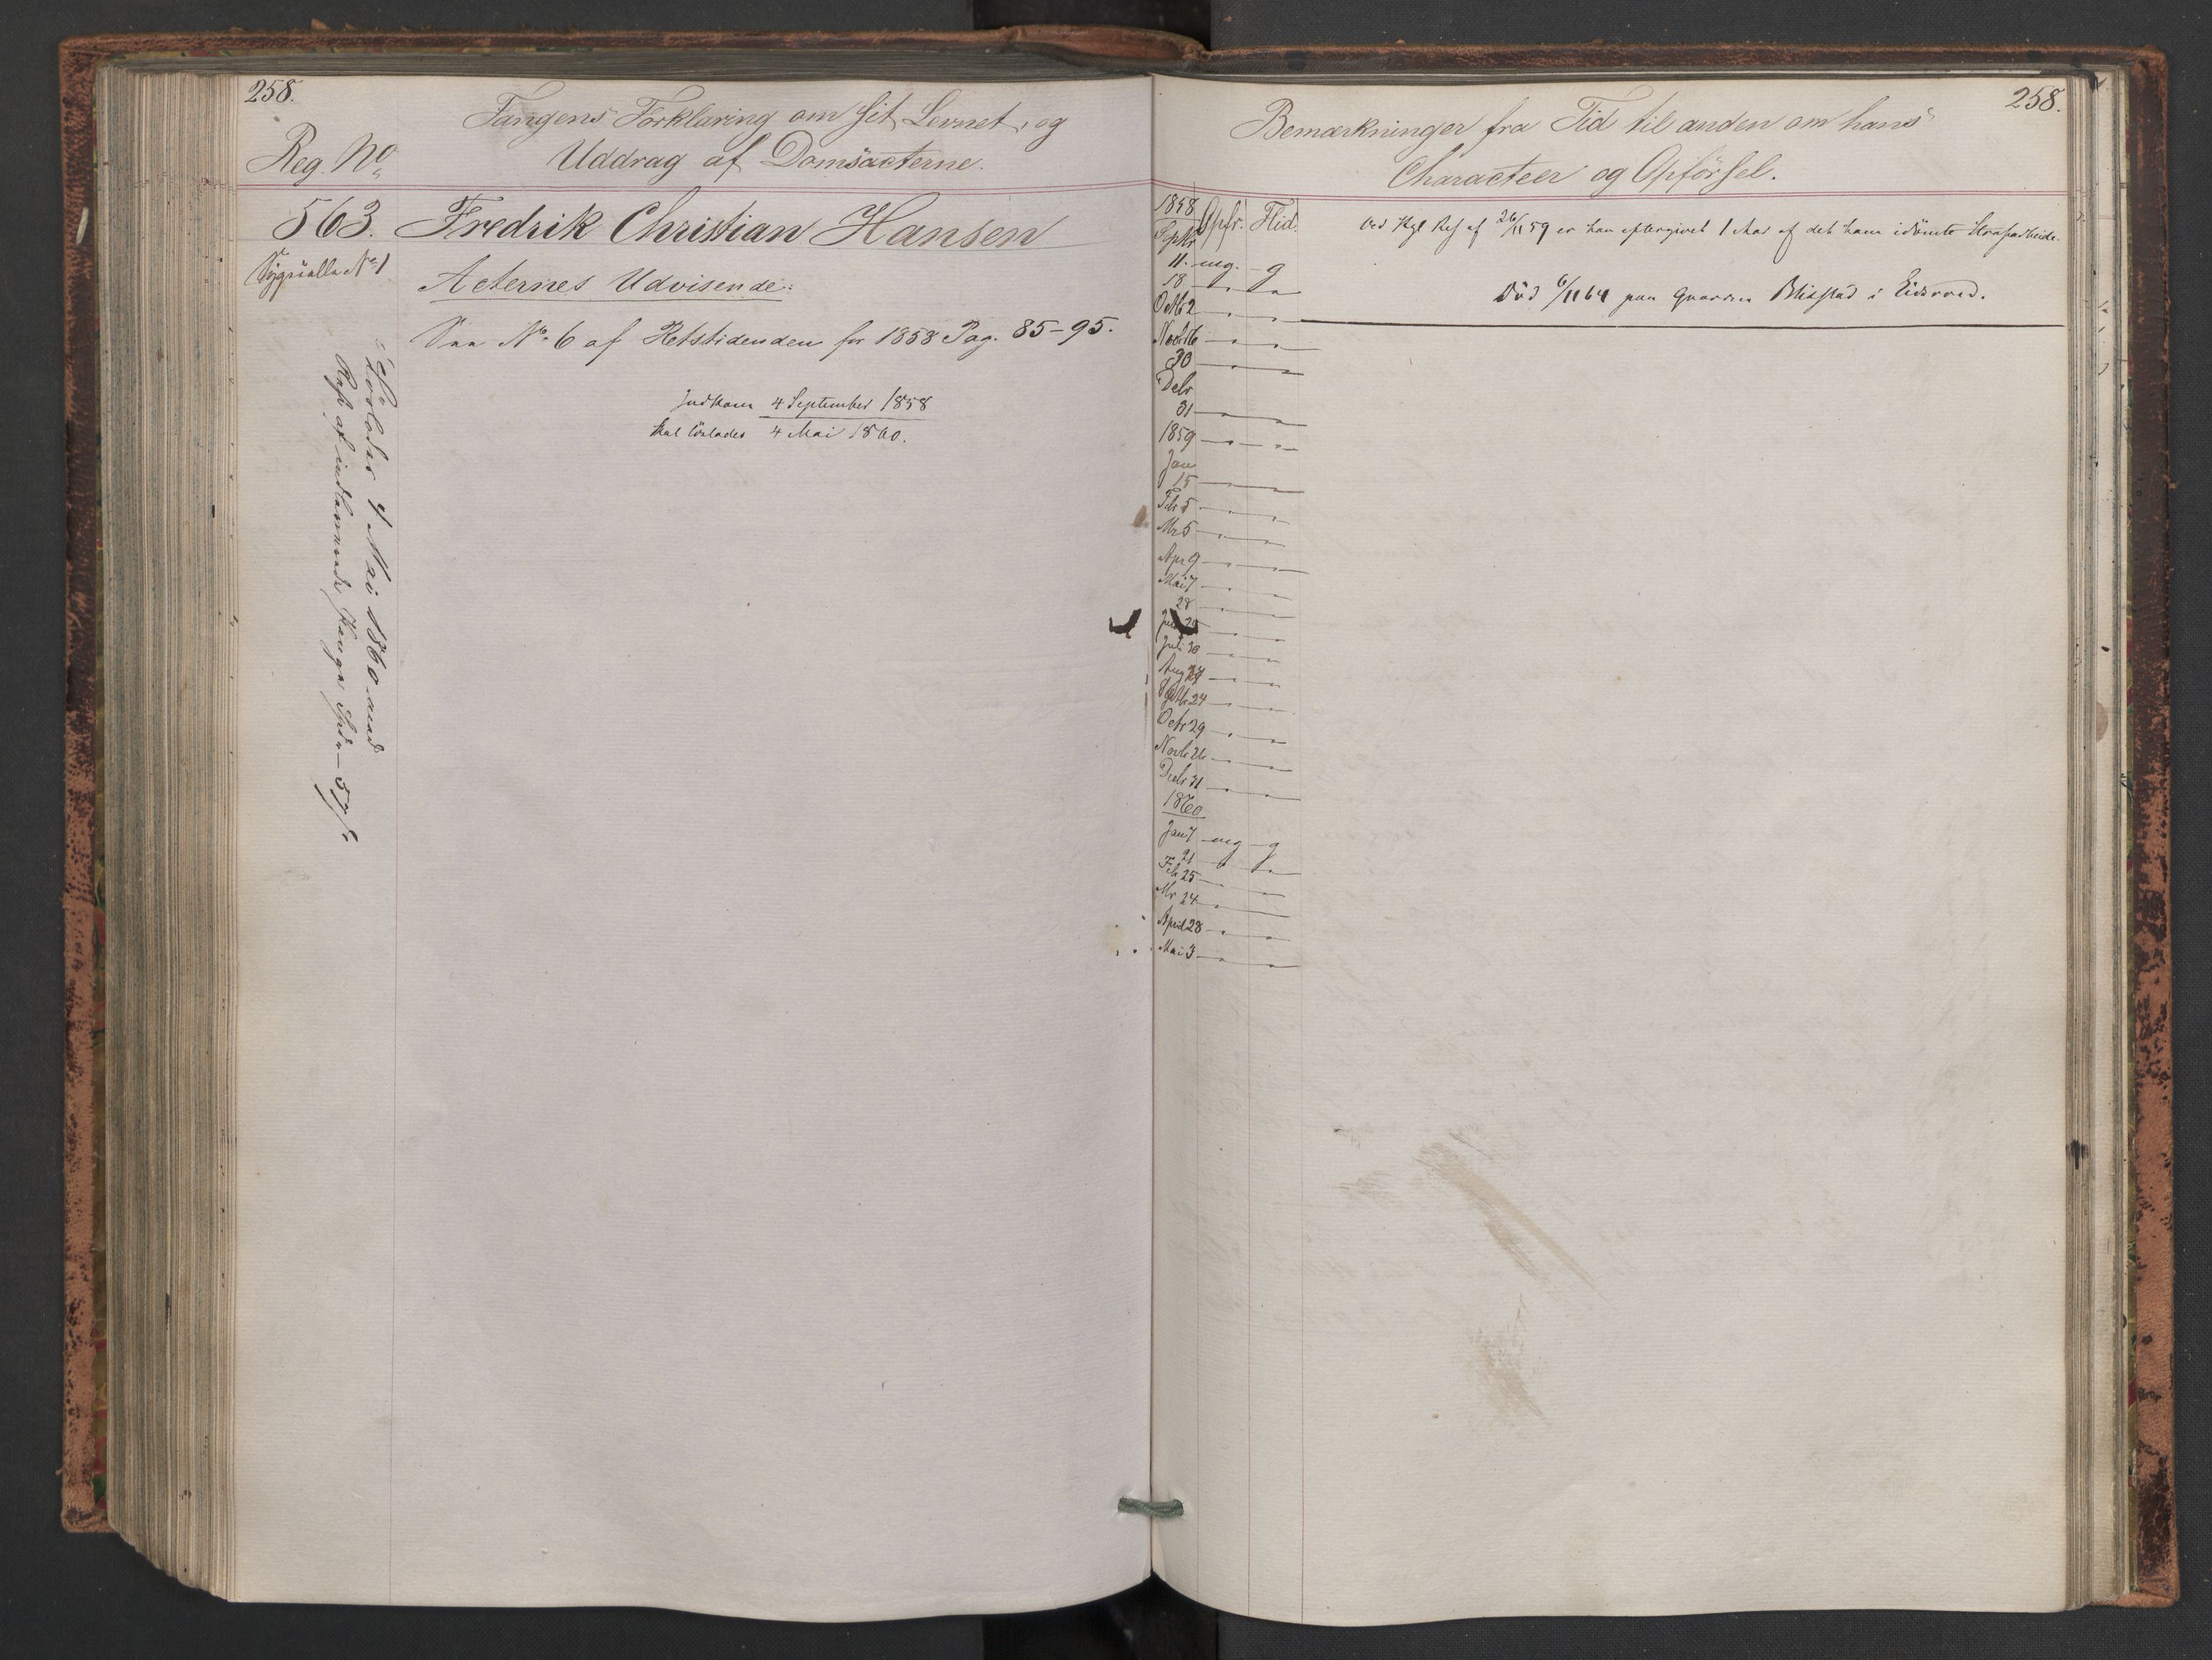 258.
Fangens Forklaring om sit Levnet, og
Reg. No
Uddrag af Domsacterne.
563. Fredrik Christian Hansen
No 1
Acternes Udvisende:
Saa No 6 af Retstidenden for 1858 Pag. 85-95.
Indkom 4 September 1858
skal löslades 4 Mai 1860.
Lösladt 4 Mai 1860 med
Rest af indkomne Penge Spd. - 57 s
258.
Bemærkninger fra Tid til anden om hans
Characteer og Opförsel.
1858 Opfr. Flid.
Septr
11. mg. g
18 " "
Octbr 2 " "
Novbr 16 " "
30 " "
Debr
31 " "
1859 " "
Jan
15 " "
Febr 5 " "
Mr 5 " "
Apr 9 " "
Mai 7 " "
28 " "
Juni 25 " "
Juli 30 " "
Aug 27 " "
Septbr 24 " "
Octr 29 " "
Novbr 26 " "
Decbr 31 " "
1860
Jan 7 mg g
21 " "
Feb 25 " "
Mr 24 " "
April 28 " "
Mai 3 " "
Ved Kgl Res af 26/11 59 er han eftergivet 1 Aar af det ham idömte Strafarbeide.
Död 6/11 64 paa Gaarden i Eidsvold.